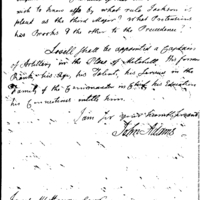 wish to know also by what rule Jackson is
placed as the third Major? What Pretensions
has Brooks & the other to the Precedence?
Lovell shall be appointed a Captain
of Artillery in the Place of Mitchell. His former
Rank & his Age, his Talent, his Service in the
Family of the Commander in Chief, his Education
his Connections entitle him.
I am Sir your humble Servant
John Adams